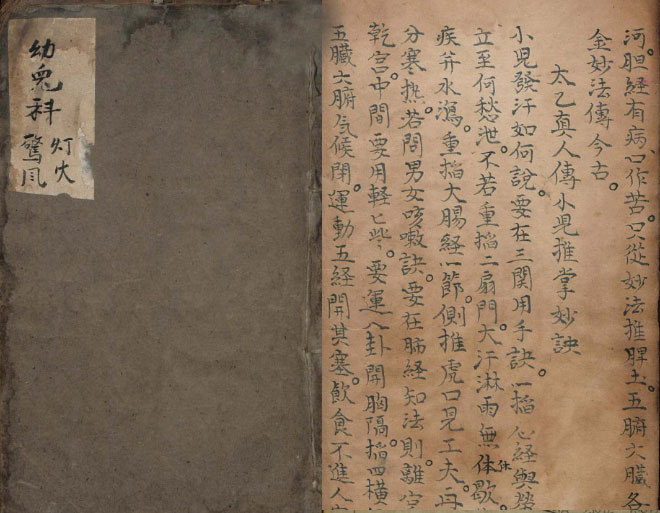 幼兒科
灯火
驚风
河。胆经有病、口作苦。只從妙法推脾土。五腑六臓各
金妙法傳今古。
太乙真人傳小児推掌妙訣
小児發汗如何說。要在三関用手訣。一掐心経與勞
立至何愁泄。不若重掐二扇門。大汗淋雨無体歇。
休
疾并水瀉。重掐大腸経一節。側推虎口見工夫。再
分寒热。若問男女咳嗽訣。要在肺经知法則。離宫
乾宫中間要用軽匕些。要運八卦開胸隔。掐四橫
五臓六腑气候閉。運動五经開其塞。飲食不進人